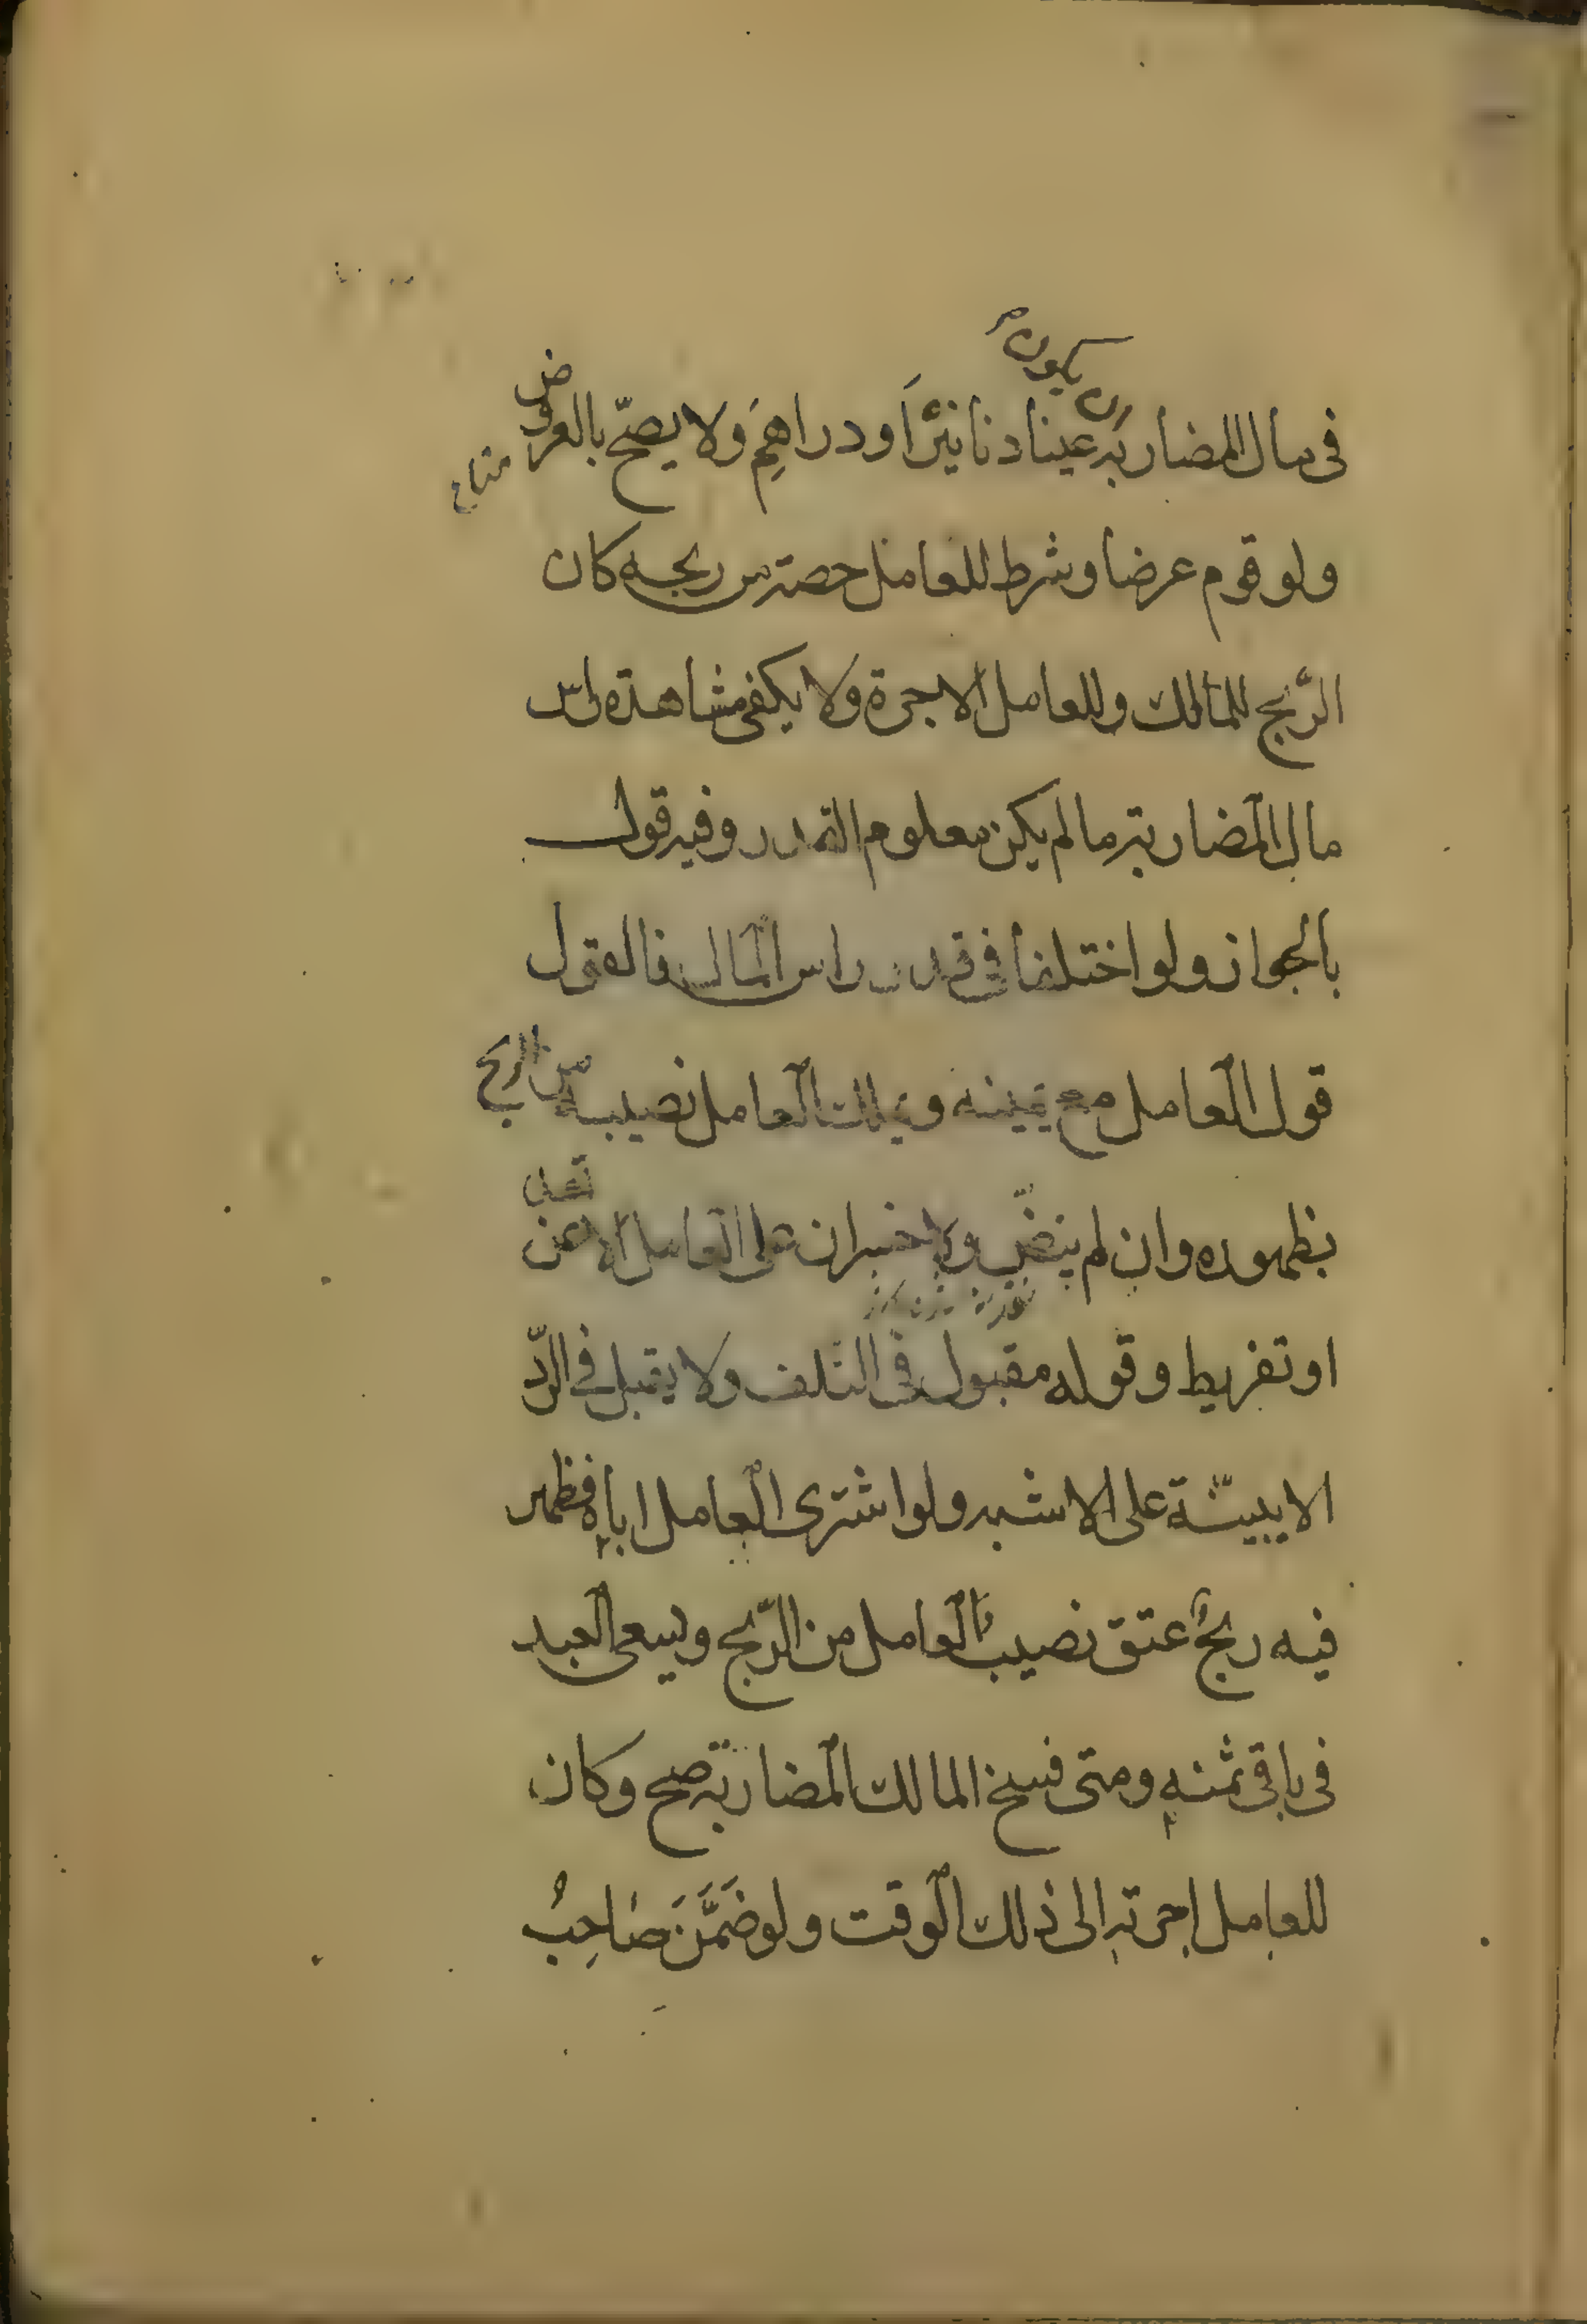 ان يكون
فى مال المضاربة عينا دنانيرَ او دراهم ولا يصحّ بالعروض
متاع
ولو قوم عرضا وشرط للعامل حصة من ربحه كان
الرّبح للمالك وللعامل الاجرة ولا يكفى مشاهدة راس
مال المضاربة ما لم يكن معلوم القدر وفيه قول
بالجواز ولو اختلفا فى قدر راس المال فالقول
قول العامل مع يمينه ويملك العامل نصيبه من الربح
بظهوره وان لم ينضّ ولا خسران على العامل الا عن تعدّى
او تفريط وقوله مقبول فى التلف ولا يقبل فى الردّ
الا ببيّنة على الاشبه ولو اشترى العامل اباه فظهر
فيه ربحٌ عتق نصيب العامل من الرّبح ويسعى العبد
فى باقى ثمنه ومتى فسخ المالك المضاربة صح وكان
للعامل اجرته الى ذلك الوقت ولو ضَمَّنَ صَاحِبُ